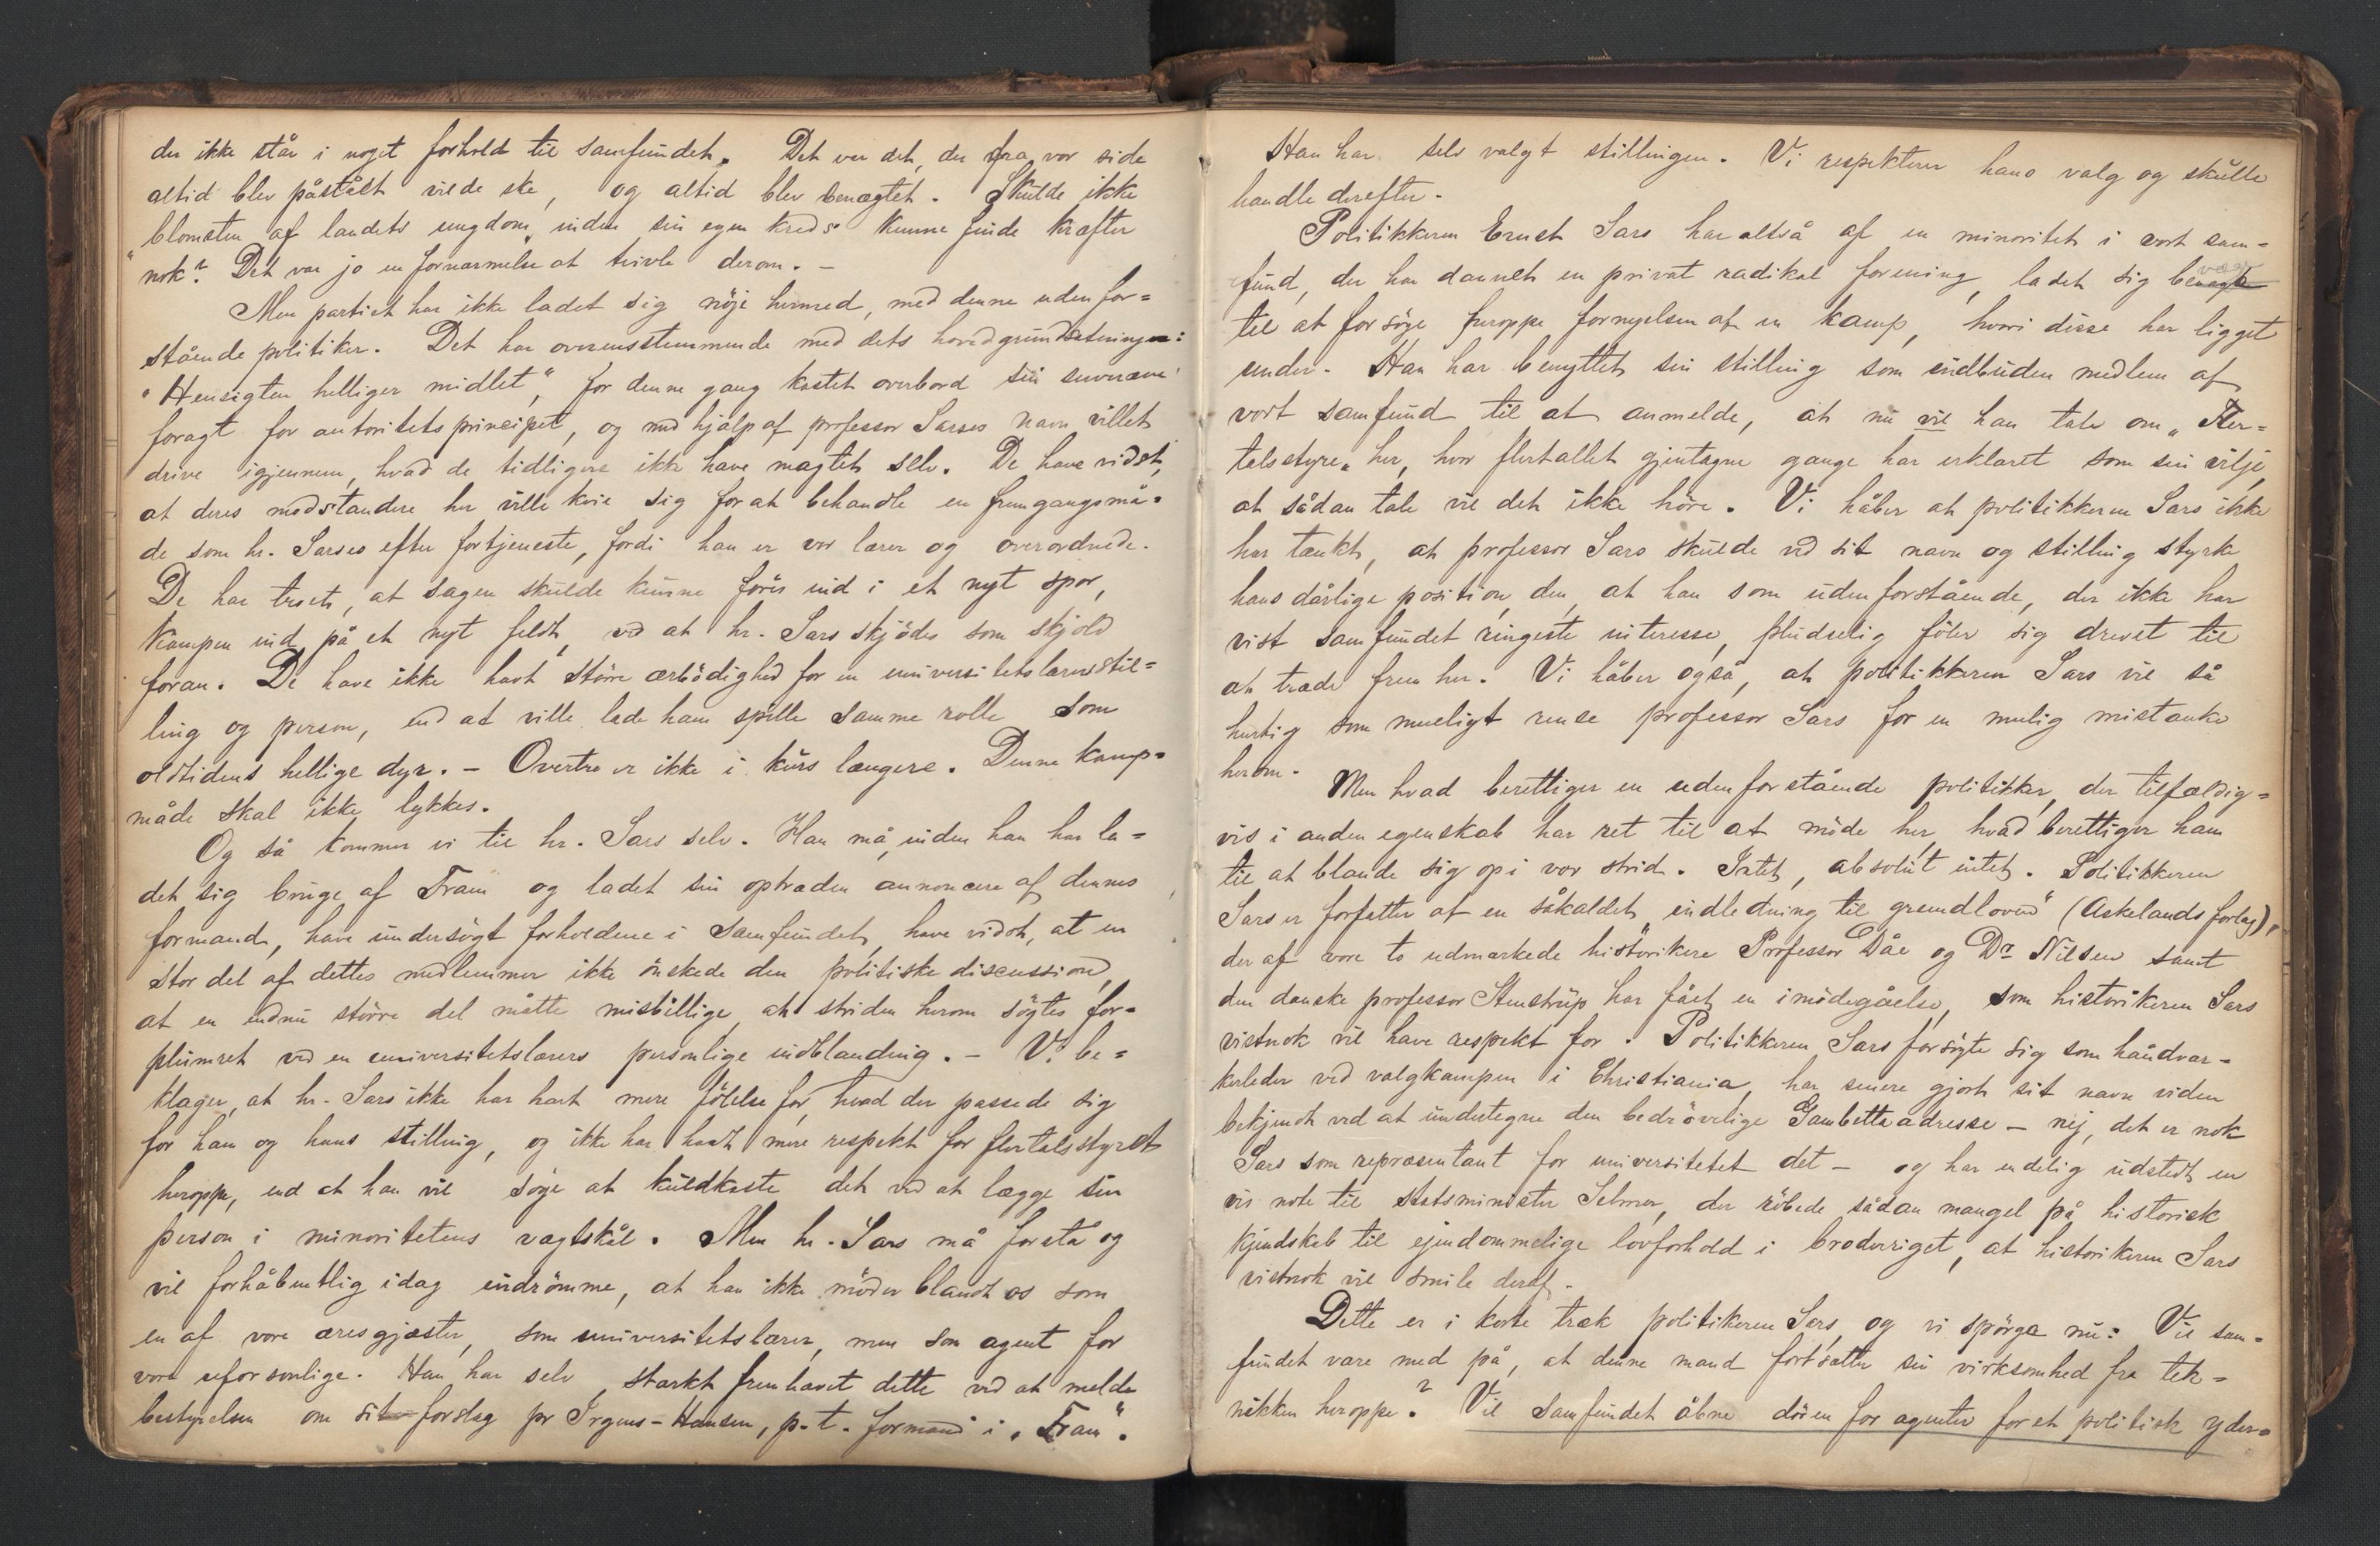 der ikke står i noget forhold til samfundet. Det var det, der fra vor side
altid blev påstået vilde ske, og altid blev benægtet. Skulde ikke
"blomsten af landets ungdom" inden sin egen kreds kunne finde kræfter
nok? Det var jo en fornærmelse at tvivle derom. –
Men partiet har ikke ladet sig nøje hermed, med denne udenfor=
stående politiker. Det har overensstemmende med dets hovedgrundsætninger:
"Hensigten helliger midlet", for denne gang kastet overbord sin suveræne
foragt for autoritetsprincipet, og med hjælp af professor Sarses navn villet
drive igjennem, hvad de tidligere ikke have magtet selv. De have vidst,
at deres modstandere her ville kvie sig for at behandle en fremgangsmå=
de som hr. Sarses efter fortjeneste, fordi han er vor lærer og overordnede.
De har troet, at sagen skulde kunne føres ind i et nyt spor,
kampen ind på et nyt feldt, ved at hr. Sars skjødes som skjold
foran. De have ikke havt større ærbödighed for en universitetslærerstil=
ling og person, end at ville lade ham spille samme rolle som
oldtidens hellige dyr. – Overtro er ikke i kurs længere. Denne kamp=
måde skal ikke lykkes.
Og så kommer vi til hr. Sars selv. Han må, inden han har la=
det sig bruge af Fram og ladet sin optræden annoncere af dennes
formand, have undersøgt forholdene i Samfundet, have vidst, at en
stor del af dettes medlemmer ikke önskede den politiske discussion,
at en endnu större del måtte misbillige, at striden herom søgtes for=
plumret ved en universitetslærers personlige indblanding. – Vi be=
klager, at hr. Sars ikke har havt mere fölelse for, hvad der passede sig
for ham og hans stilling, og ikke har havt mere respekt for flertalsstyret
heroppe, end at han vil søge at kuldkaste det ved at lægge sin
person i minoritetens vægtskål. Men hr. Sars må forstå og
vil forhåbentlig idag indrömme, at han ikke möder blandt os som
en af vore æresgjæster, som universitetslærer, men som agent for
vore uforsonlige. Han har selv stærkt fremhævet dette ved at melde
bestyrelsen om sit forslag pr Irgens-Hansen, p.t. formand i "Fram".
Han har selv valgt stillingen. Vi respekterer hans valg og skulle
handle derefter.
Politikkeren Ernst Sars har altså af en minoritet i vort sam=
fund, der har dannet en privat radikal forening, ladet sig bevæge
til at forsöge heroppe fornyelsen af en kamp, hvori disse har ligget
under. Han har benyttet sin stilling som indbuden medlem af
vort samfund til at anmelde, at nu vil han tale om "Fler=
talsstyre" her, hvor flertallet gjentagne gange har erklæret som sin vilje,
at sådan tale vil det ikke höre. Vi håber at politikkeren Sars ikke
har tænkt, at professor Sars skulde ved sit navn og stilling styrke
hans dårlige position, den, at han som udenforstående, der ikke har
vist samfundet ringeste interesse, pludselig föler sig drevet til
at træde frem her. Vi håber også, at politikkeren Sars vil så
hurtig som mueligt rense professor Sars for en mulig mistanke
herom.
Men hvad berettiger en udenforstående politikker, der tilfældig=
vis i anden egenskab har ret til at möde her, hvad berettiger ham
til at blande sig op i vor strid. Intet, absolut intet. Politikkeren
Sars er forfatter af en såkaldet "indledning til grundloven" (Askelands forlag),
der af vore to udmærkede historikere Professor Dåe og Dr Nilsen samt
den danske professor Stenstrup har fået en imödegåelse, som historikeren Sars
vistnok vil have respekt for. Politikkeren Sars forsögte sig som håndvær=
kerleder ved valgkampen i Christiania, har senere gjort sit navn viden
bekjendt ved at undertegne den bedrövelige Gambettaadresse – nej, det er nok
Sars som repræsentant for universitetet det – og har endelig udstedt en
vis note til statsminister Selmer, der röbede sådan mangel på historisk
kjendskab til ejendommelige lovforhold i broderriget, at historikeren Sars
vistnok vil smile deraf.
Dette er i korte træk politikeren Sars, og vi spörge nu: Vil sam=
fundet være med på, at denne mand fortsætter sin virksomhed fra tek=
nikken heroppe? Vil Samfundet åbne dören for agenter for et politisk yder=